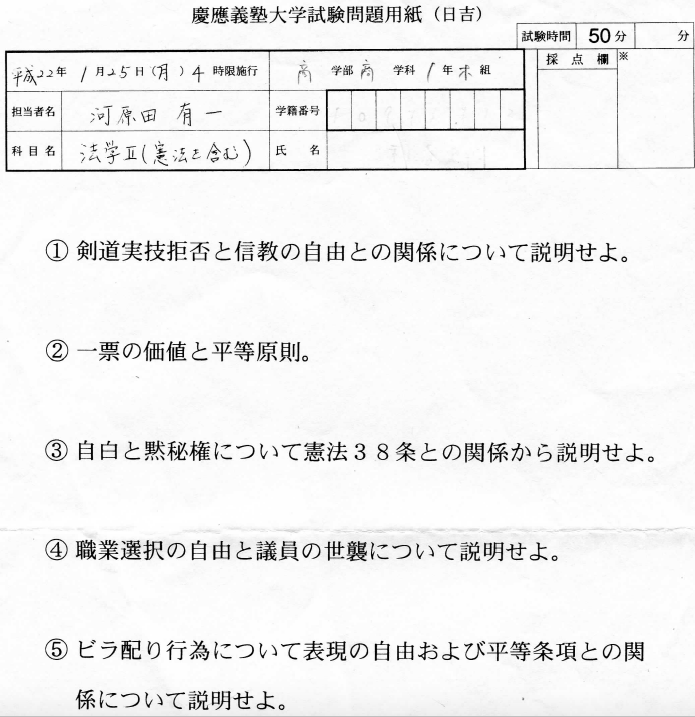 慶應義塾大学試験問題用紙（日吉）
試験時間 50分 分
平成22年 1月25日(月) 4時限施行 商学部商学科1年ホ組
採点欄 ※
担当者名 河原田 有一 学籍番号
科目名 法学Ⅱ(憲法を含む) 氏名
① 剣道実技拒否と信教の自由との関係について説明せよ。
② 一票の価値と平等原則。
③ 自白と黙秘権について憲法３８条との関係から説明せよ。
④ 職業選択の自由と議員の世襲について説明せよ。
⑤ ビラ配り行為について表現の自由および平等条項との関
係について説明せよ。